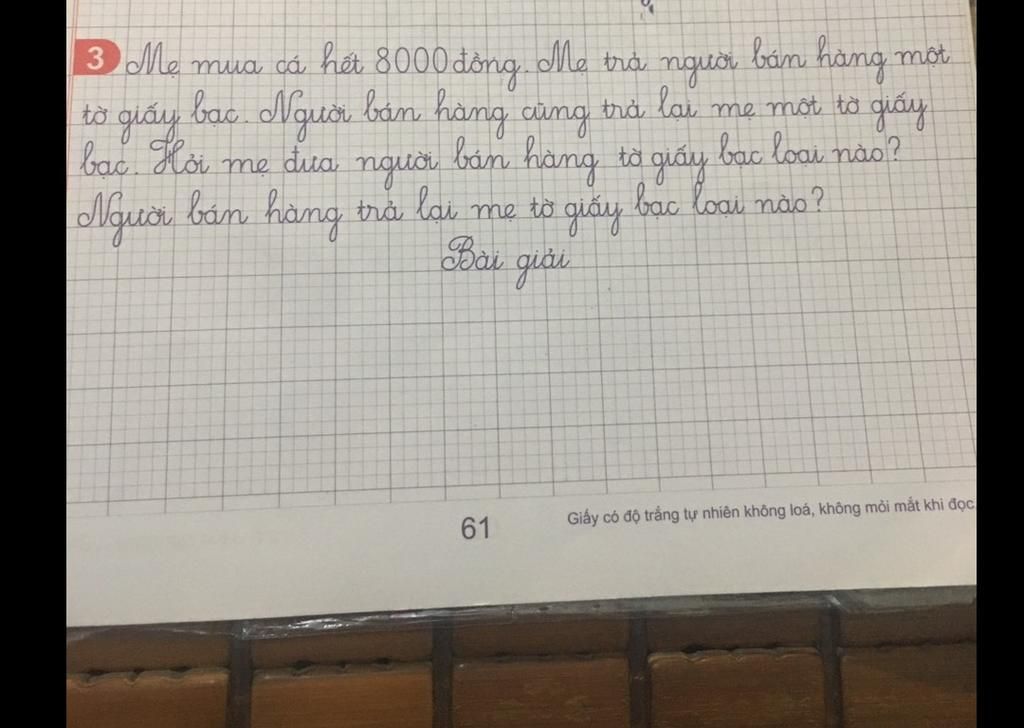 3 Mẹ mua cá hết 8000 đồng. Mẹ trả người bán hàng một
tờ giấy bạc. Người bán hàng cũng trả lại mẹ một tờ giấy
bạc. Hỏi mẹ đưa người bán hàng tờ giấy bạc loại nào?
Người bán hàng trả lại mẹ tờ giấy bạc loại nào?
Bài giải
61
Giấy có độ trắng tự nhiên không loá, không mỏi mắt khi đọc